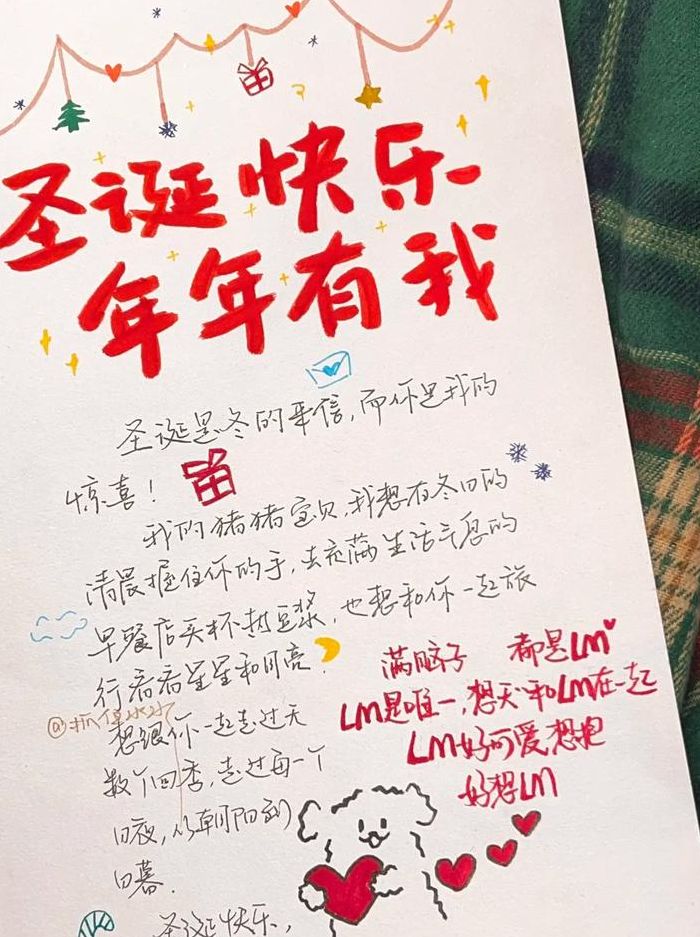 圣诞快乐
年年有我
圣诞是冬的来信,而你是我的
惊喜!
我的猪猪宝贝,我想在冬日的
清晨握住你的手,去充满生活气息的
早餐店买杯热豆浆,也想和你一起旅
行看看星星和月亮.
想跟你一起走过无
数个四季,走过每一个
日夜,从朝阳到
日暮.
圣诞快乐,
满脑子 都是LM
LM是唯一,想天天和LM在一起
LM好可爱,想抱
好想LM